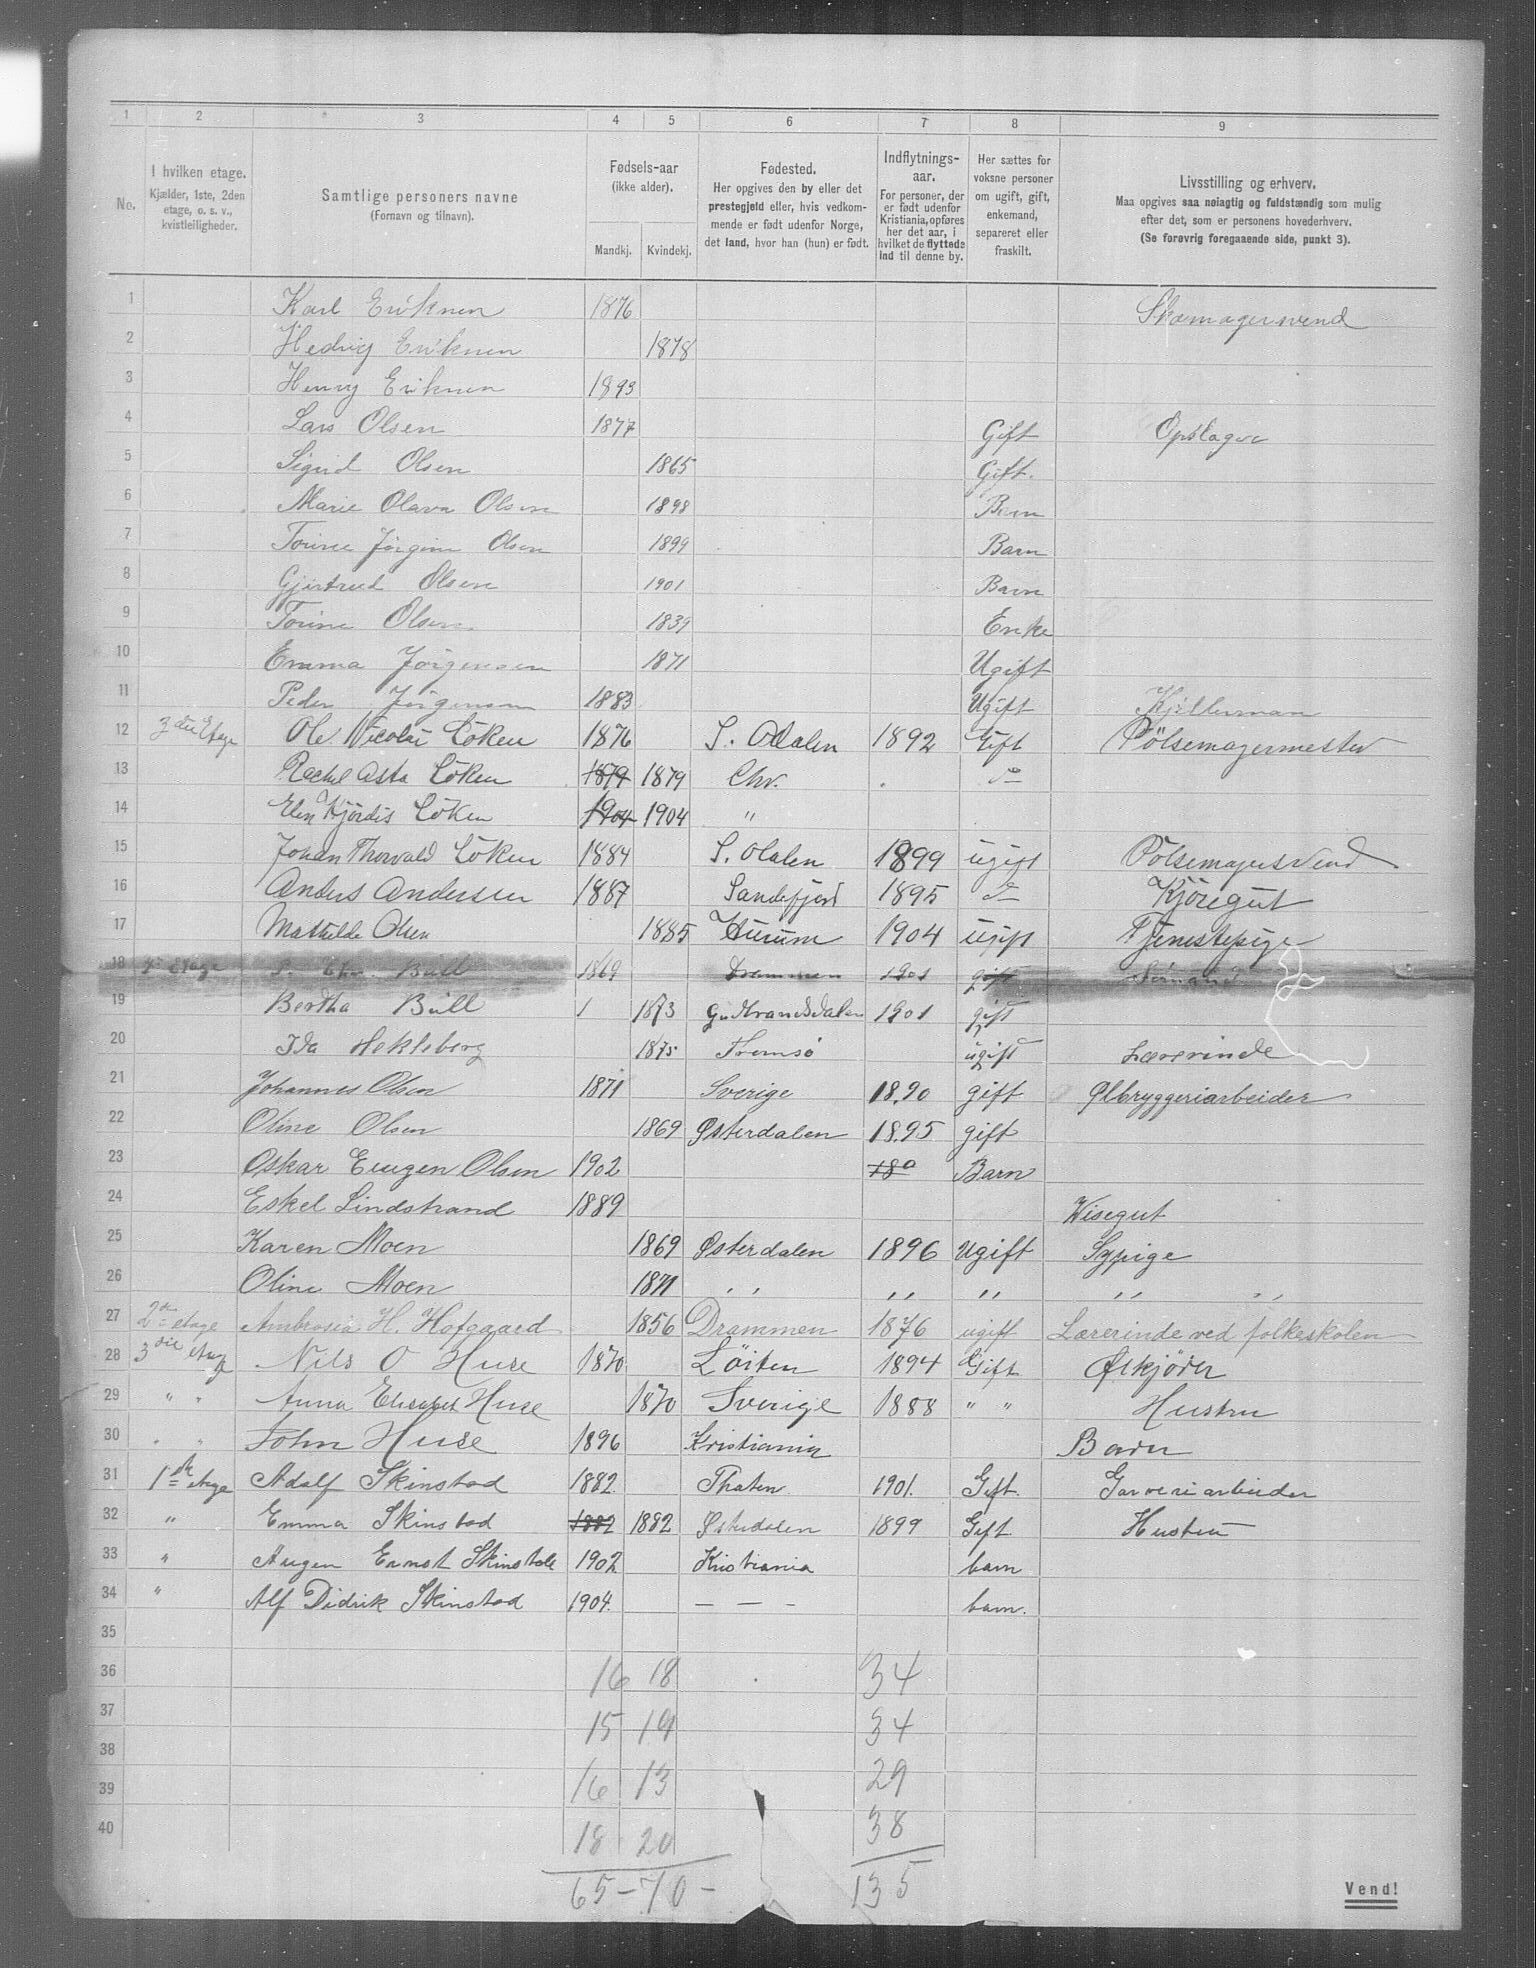 1 2 3 4 5 6 7 8 9
No.
I hvilken etage.
Kjælder, 1ste, 2den
etage, o. s. v.,
kvistleiligheder.
Samtlige personers navne
(Fornavn og tilnavn).
Fødsels-aar
(ikke alder).
Mandkj. Kvindekj.
Fødested.
Her opgives den by eller det
prestegjeld eller, hvis vedkom-
mende er født udenfor Norge,
det land, hvor han (hun) er født.
Indflytnings-
aar.
For personer, der
er født udenfor
Kristiania, opføres
her det aar, i
hvilket de flyttede
ind til denne by.
Her sættes for
voksne personer
om ugift, gift,
enkemand,
separeret eller
fraskilt.
Livsstilling og erhverv.
Maa opgives saa nøiagtig og fuldstændig som mulig
efter det, som er personens hovederhverv.
(Se forøvrig foregaaende side, punkt 3).
1 Karl Eriksen 1876 Skomagersvend
2 Hedvig Eriksen 1878
3 Henry Eriksen 1893
4 Lars Olsen 1877 Gift Opslager
5 Sigrid Olsen 1865 Gift.
6 Marie Olava Olsen 1898 Barn
7 Torine Jørgine Olsen 1899 Barn
8 Gjertrud Olsen 1901 Barn
9 Torine Olsen 1839 Enke
10 Emma Jørgensen 1871 Ugift
11 Peder Jørgensen 1883 Ugift Kjellerman
12 3die Etage Ole Nicolai Löken 1876 S. Odalen 1892 Gift Pölsemagermester
13 Rachel Asta Löken 1879 1879 Chr. do
14 Elen Hjördis Löken 1904 1904 "
15 Johan Thorvald Löken 1884 S. Odalen 1899 ugift Pölsemagersvend
16 Anders Andersen 1887 Sandefjord 1895 do Kjöregut
17 Mathilde Olsen 1885 Hurum 1904 ugift Tjenestepige
18 etage Chr. Bull 1869 Drammen 1901 gift
19 Bertha Bull 1 1873 Gudbrandsdalen 1901 gift
20 Ida Hekleberg 1875 Tromsø ugift Lærerinde
21 Johannes Olsen 1871 Sverige 1890 gift Ølbryggeriarbeider
22 Oline Olsen 1869 Østerdalen 1895 gift
23 Oskar Eugen Olsen 1902 Barn
24 Eskel Lindstrand 1889 Visegut
25 Karen Moen 1869 Østerdalen 1896 Ugift Sypige
26 Oline Moen 1871 ,, ,, ,, ,, ,,
27 2den etage Ambrosia H. Hofgaard 1856 Drammen 1876 ugift Lærerinde ved folkeskolen
28 3die etage Nils O Huse 1870 Löiten 1894 Gift Ølkjörer
29 " " Anna Elisabet Huse 1870 Sverige 1888 " " Hustru
30 " " John Huse 1896 Kristiania Barn
31 1ste etage Adolf Skinstad 1882 Thoten 1901. Gift. Garveriarbeider
32 " Emma Skinstad 1882 1882 Østerdalen 1899 Gift Hustru
33 " Augen Ernst Skinstad 1902 Kristiania barn
34 " Alf Didrik Skinstad 1904. — — - barn.
35
36 16 18 34
37 15 19 34
38
39 16 13 29
40 18 20 38
65 - 70 - 135
Vend!